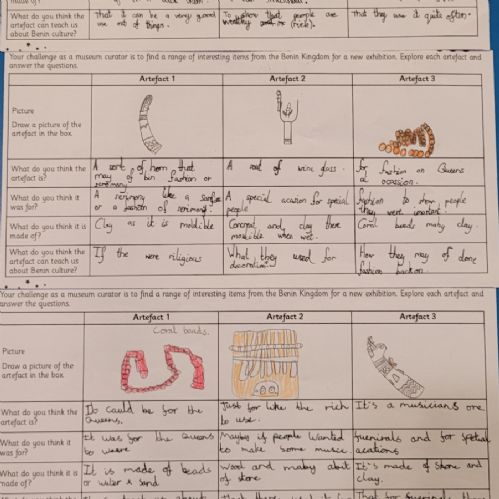 made of?
What do you think the artefact can teach us about Benin culture?
That it can be a very good use out of things.
To show that people are wealthy (rich).
That they use it quite often.
Your challenge as a museum curator is to find a range of interesting items from the Benin Kingdom for a new exhibition. Explore each artefact and
answer the questions.
Artefact 1
Artefact 2
Artefact 3
Picture
Draw a picture of the
artefact in the box
What do you think the
artefact is?
A sort of horn that
may of bin fashion or
A sort of wine glass.
for fashion on Queens
ocassion.
What do you think it
was for?
or a fashion of
A special acasion for special
people
fashion to show people
they were important.
What do you think it is
made of?
Clay as it is moldible
and clay there
when wet.
Coral beads maby clay.
What do you think the
artefact can teach us
about Benin culture?
If the were religious
What they used for
decoration.
How they may of done
fashion back on
Your challenge as a museum curator is to find a range of interesting items from the Benin Kingdom for a new exhibition. Explore each artefact and
answer the questions.
Artefact 1
Artefact 2
Artefact 3
Coral beads.
Picture
Draw a picture of the
artefact in the box.
What do you think the
artefact is?
It could be for the
Queens,
Just for like the rich
to use.
It's a musicians one
What do you think it
was for?
It was for the Queens
to weare
Maybe is people wanted
to make some music
and for
acations
What do you think it is
made of?
It is made of beads
or water & sand
Wood and maby abit
of stone
It's made of stone and
clay.
What do you think the